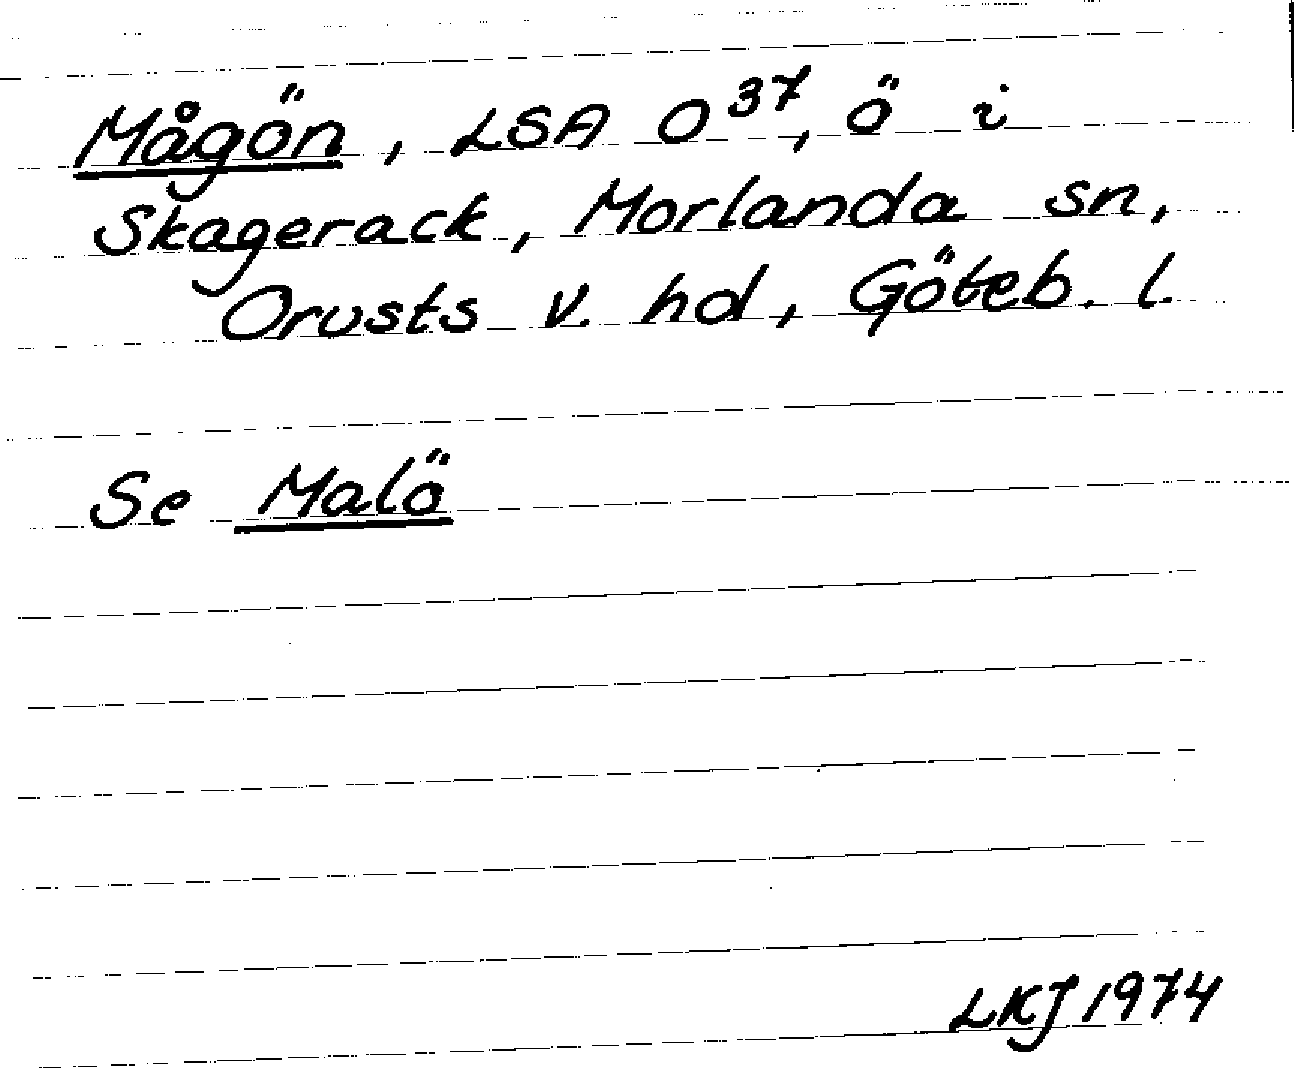 Mågön, LSA O 37, ö i
Skagerack, Morlanda sn,
Orusts v. hd, Göteb. l.
Se Malö
LKJ 1974